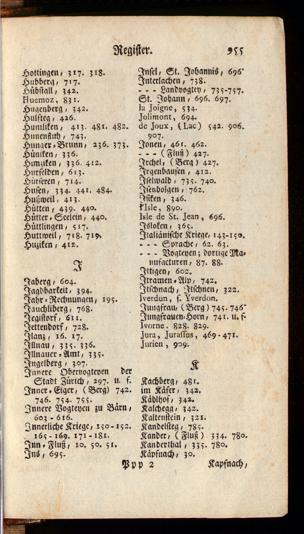 Register. 955
Hottingen, 317. 318.
Hubberg, 717.
Hübstall, 342.
Huemoz, 831.
Hugenberg, 342.
Hulfteg, 426.
Humliken, 413. 481. 482.
Hunenstuh, 743.
Hunger-Brunn, 236. 373.
Hüniken, 336.
Humziken, 336. 412.
Hurfelden, 613.
Hürseren, 714.
Husen, 334. 441. 484.
Hußweil, 413.
Hütten, 439. 440.
Hütter-Seelein, 440.
Hüttlingen, 517.
Huttweil, 718. 719.
Huziken, 412.
J
Jaberg, 604.
Jagdbarkeit, 394.
Jahr-Rechnungen, 195.
Jauchliberg, 768.
Jegistorf, 611.
Jettendorf, 728.
Jlanz, 16. 17.
Jllnau, 335. 336.
Jllnauer-Amt, 335.
Jngelberg, 307.
Jnnere Obervogteyen der
Stadt Zürich, 297. u. f.
Jnner-Eiger, (Berg) 742.
746. 754. 755.
Jnnere Vogteyen zu Bärn,
603-616.
Jnnerliche Kriege, 150-152.
165-169. 171-181.
Jnn-Fluß, 20. 50. 51.
Jns, 695.
Jnsel, St. Johannis, 696
Jnterlachen, 738.
- - - Landvogtey, 735-757.
St. Johann, 696. 697.
la Joigne, 534.
Jolimont, 694.
de Joux, (Lac) 542. 906.
907.
Jonen, 461. 462.
- - - (Fluß) 427.
Jrchel, (Berg) 427.
Jrgenhausen, 412.
Jselwald, 735. 740.
Jsenbolgen, 762.
Jsiken, 346.
l'Isle, 890.
Isle de St. Jean, 696.
Jsloken, 365.
Jtaliänische Kriege, 143-150.
- - - Sprache, 62. 63.
- - - Vogteyen; dortige Ma-
nufacturen, 87. 88.
Jttigen, 602.
Jtramen-Alp, 742.
Jtschnach, Jtschnen, 322.
Iverdun, s. Yverdon.
Jungfrau, (Berg) 745. 746
Jungfrauen-Horn, 741. u. f.
Ivorne. 828. 829.
Jura, Jurassus, 469-471.
Jurien, 909.
K
Kachberg, 481.
im Käfer, 342.
Kalchegg, 342.
Kaltenstein, 321.
Kandelsteg, 785.
Kander, (Fluß) 334. 780.
Kanderthal, 335. 780.
Käpfnach, 30.
Ppp 2 Kapfnach,